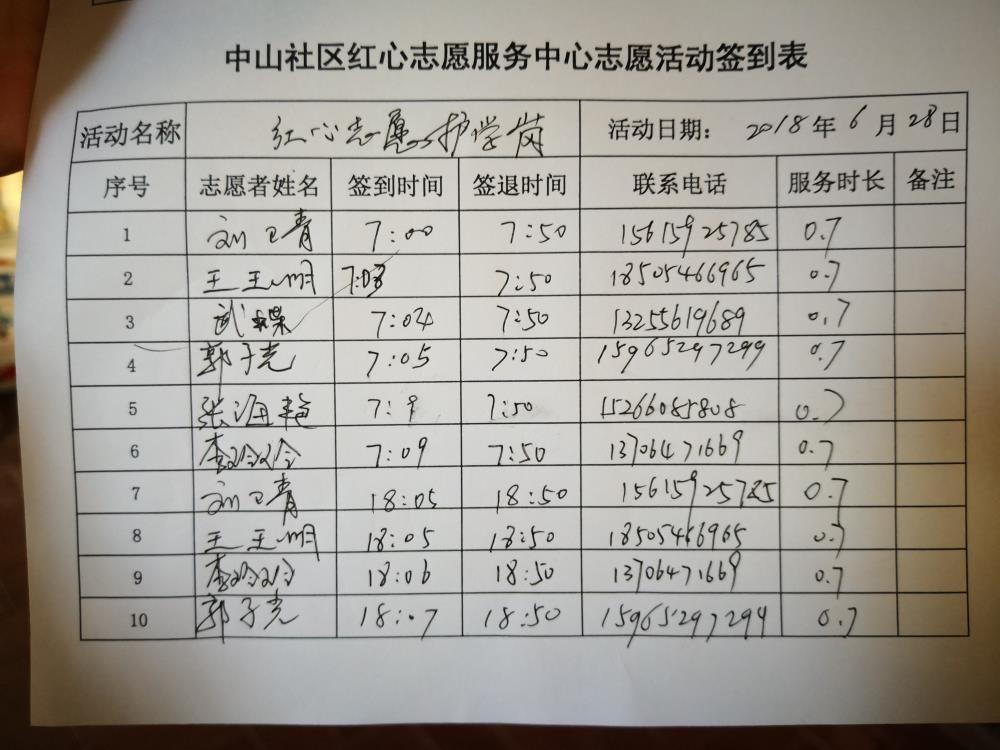 中山社区红心志愿服务中心志愿活动签到表
活动名称 红心志愿护学岗 活动日期： 2018年6月28日
序号 志愿者姓名 签到时间 签退时间 联系电话 服务时长 备注
1 刘卫青 7:00 7:50 15615925785 0.7
2 王玉明 7:03 7:50 18505466965 0.7
3 武蝶 7:04 7:50 13255619689 0.7
4 郭子光 7:05 7:50 15965297299 0.7
5 张海艳 7:9 7:50 15266085808 0.7
6 李玲玲 7:09 7:50 13706471669 0.7
7 刘卫青 18:05 18:50 15615925785 0.7
8 王玉明 18:05 18:50 18505466965 0.7
9 李玲玲 18:06 18:50 13706471669 0.7
10 郭子光 18:07 18:50 15965297299 0.7